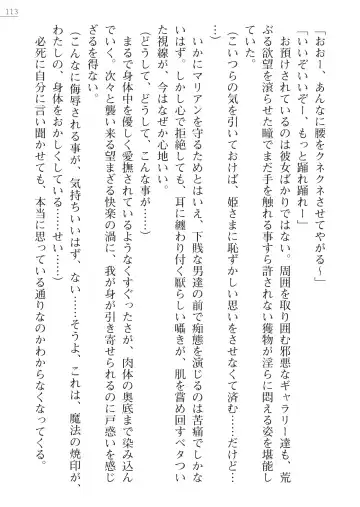 113
「おおー、あんなに腰をクネクネさせてやがる〜」
「いいぞいいぞー、もっと踊れ踊れー」
お預けされているのは彼女ばかりではない。周囲を取り囲む邪悪なギャラリー達も、荒
ぶる欲望を滾らせた瞳でまだ手を触れる事すら許されない獲物が淫らに悶える姿を堪能し
ていた。
（こいつらの気を引いておけば、姫さまに恥ずかしい思いをさせなくて済む……だけど…
いかにマリアンを守るためとはいえ、下賎な男達の前で痴態を演じるのは苦痛でしかな
いはず。しかし心で拒絶しても、耳に纏わり付く厭らしい囁きが、肌を嘗め回すベタつい
た視線が、今はなぜか心地いい。
（どうして、どうして、こんな事が……）
まるで身体中を優しく愛撫されているようなくすぐったさが、肉体の奥底まで染み込ん
でいく。次々と襲い来る望まざる快楽の渦に、我が身が引き寄せられるのに戸惑いを感じ
ざるを得ない。
（こんなに侮辱される事が、気持ちいいはず、ない……そうよ、これは、魔法の焼印が、
わたしの、身体をおかしくしている……せい……）
必死に自分に言い聞かせても、本当に思っている通りなのかわからなくなってくる。